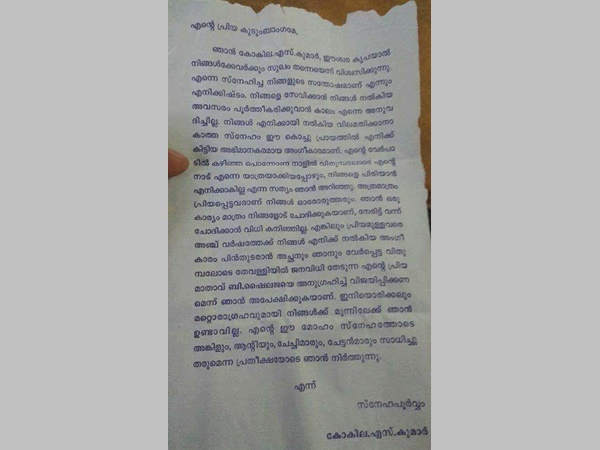 എന്റെ പ്രിയ കുടുംബാംഗമേ,
ഞാൻ കോകില.എസ്.കുമാർ, ഈശ്വര കൃപയാൽ
നിങ്ങൾക്കേവർക്കും സുഖം തന്നെയെന്ന് വിശ്വസിക്കുന്നു.
എന്നെ സ്നേഹിച്ച നിങ്ങളുടെ സന്തോഷമാണ് എന്നും
എനിക്കിഷ്ടം. നിങ്ങളെ സേവിക്കാൻ നിങ്ങൾ നൽകിയ
അവസരം പൂർത്തീകരിക്കുവാൻ കാലം എന്നെ അനുവ
ദിച്ചില്ല. നിങ്ങൾ എനിക്കായി നൽകിയ വിലമതിക്കാനാ
കാത്ത സ്നേഹം ഈ കൊച്ചു പ്രായത്തിൽ എനിക്ക്
കിട്ടിയ അഭിമാനകരമായ അംഗീകാരമാണ്. എന്റെ വേർപാ
ടിൽ കഴിഞ്ഞ പൊന്നോണ നാളിൽ വിതുമ്പലോടെ എന്റെ
നാട് എന്നെ യാത്രയാക്കിയപ്പോഴും, നിങ്ങളെ പിരിയാൻ
എനിക്കാകില്ല എന്ന സത്യം ഞാൻ അറിഞ്ഞു. അത്രമാത്രം
പ്രിയപ്പെട്ടവരാണ് നിങ്ങൾ ഓരോരുത്തരും. ഞാൻ ഒരു
കാര്യം മാത്രം നിങ്ങളോട് ചോദിക്കുകയാണ്, നേരിട്ട് വന്ന്
ചോദിക്കാൻ വിധി കനിഞ്ഞില്ല. എങ്കിലും പ്രിയമുള്ളവരെ
അഞ്ച് വർഷത്തേക്ക് നിങ്ങൾ എനിക്ക് നൽകിയ അംഗീ
കാരം പിൻതുടരാൻ അച്ഛനും ഞാനും വേർപ്പെട്ട വിതു
മ്പലോടെ തേവള്ളിയിൽ ജനവിധി തേടുന്ന എന്റെ പ്രിയ
മാതാവ് ബി.ഷൈലജയെ അനുഗ്രഹിച്ച് വിജയിപ്പിക്കണ
മെന്ന് ഞാൻ അപേക്ഷിക്കുകയാണ്. ഇനിയൊരിക്കലും
മറ്റൊരാഗ്രഹവുമായി നിങ്ങൾക്ക് മുന്നിലേക്ക് ഞാൻ
ഉണ്ടാവില്ല. എന്റെ ഈ മോഹം സ്നേഹത്തോടെ
അങ്കിളും, ആന്റിയും, ചേച്ചിമാരും, ചേട്ടൻമാരും സാധിച്ചു
തരുമെന്ന പ്രതീക്ഷയോടെ ഞാൻ നിർത്തുന്നു.
എന്ന്
സ്നേഹപൂർവ്വം
കോകില.എസ്.കുമാർ